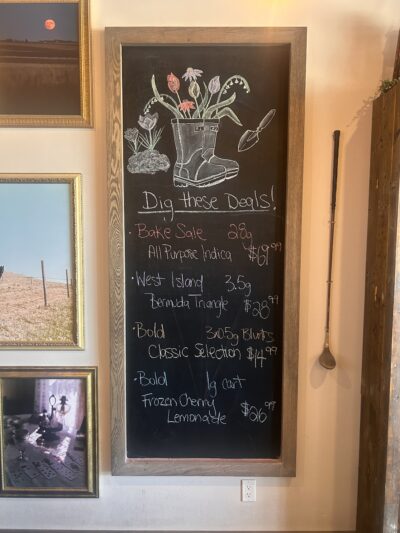 Dig these Deals!
· Bake Sale 28g
All Purpose Indica $69.99
· West Island 3.5g
Bermuda Triangle $28.99
· Bold 3x0.5g Blunts
Classic Selection $14.99
· Bold 1g cart
Frozen Cherry
Lemonade $26.99